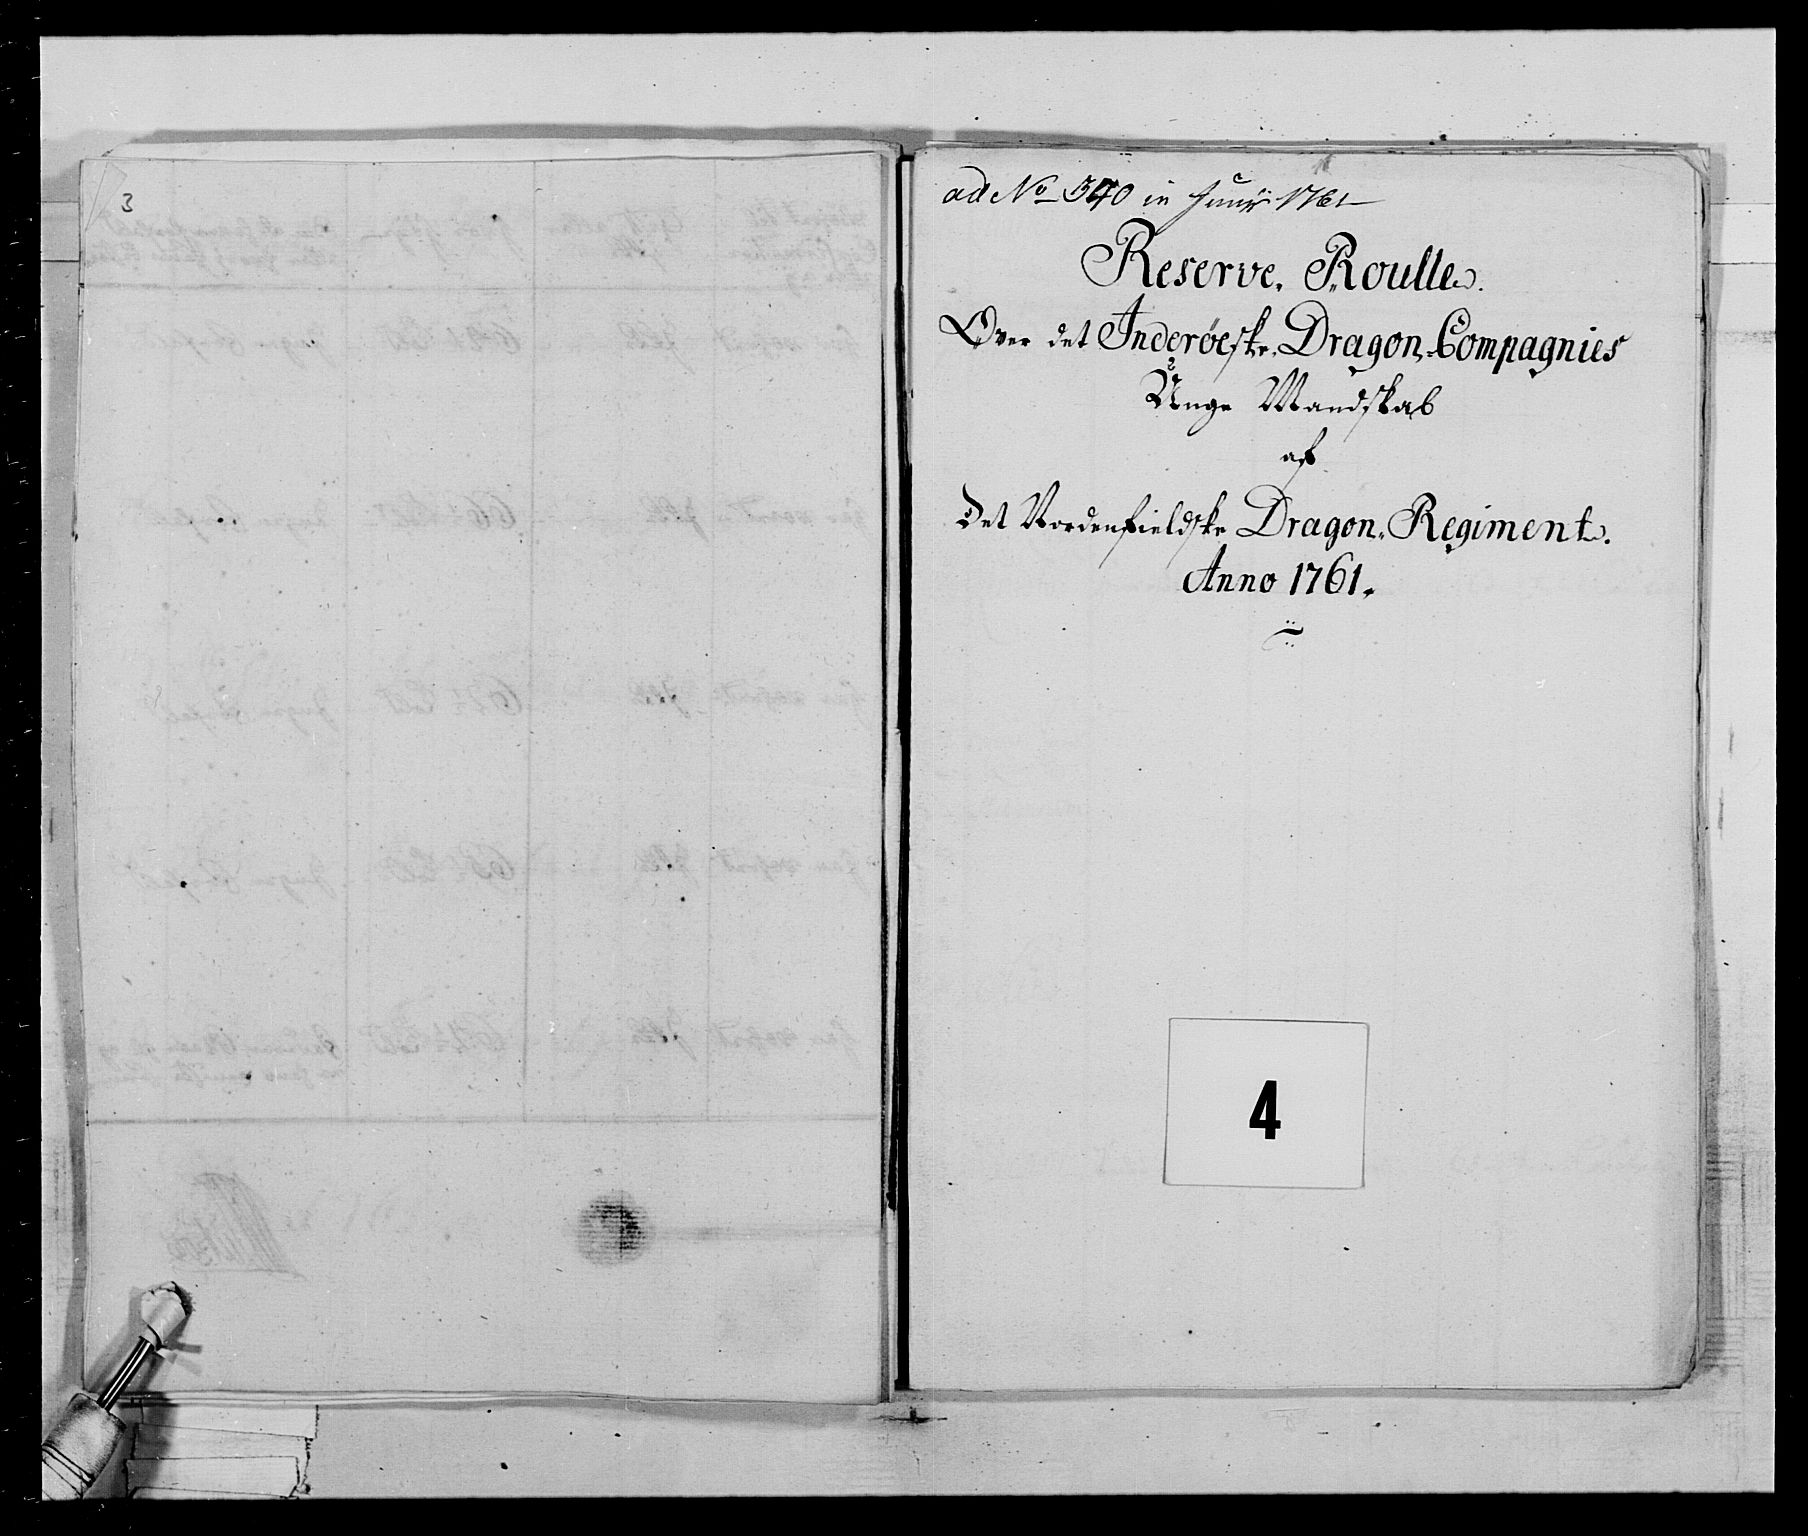 3
ad No 540 in Junij 1761
Reserve Roulle.
Over det Inderöeske Dragon Compagnies
Unge Mandskab
af
Det Nordenfieldske Dragon Regiment.
Anno 1761.
4